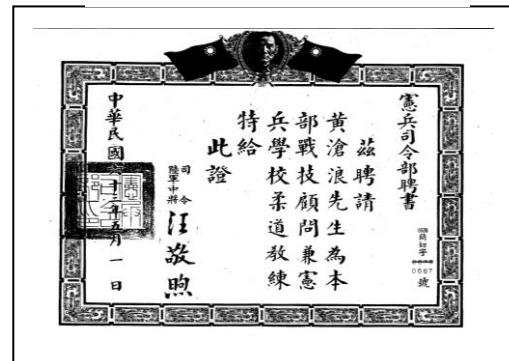 憲兵司令部聘書
號
0667
茲聘請
黃滄浪先生為本
部戰技顧問兼憲
兵學校柔道教練
特給
此證
司令
陸軍中將
汪敬煦
中華民國六十三年五月一日